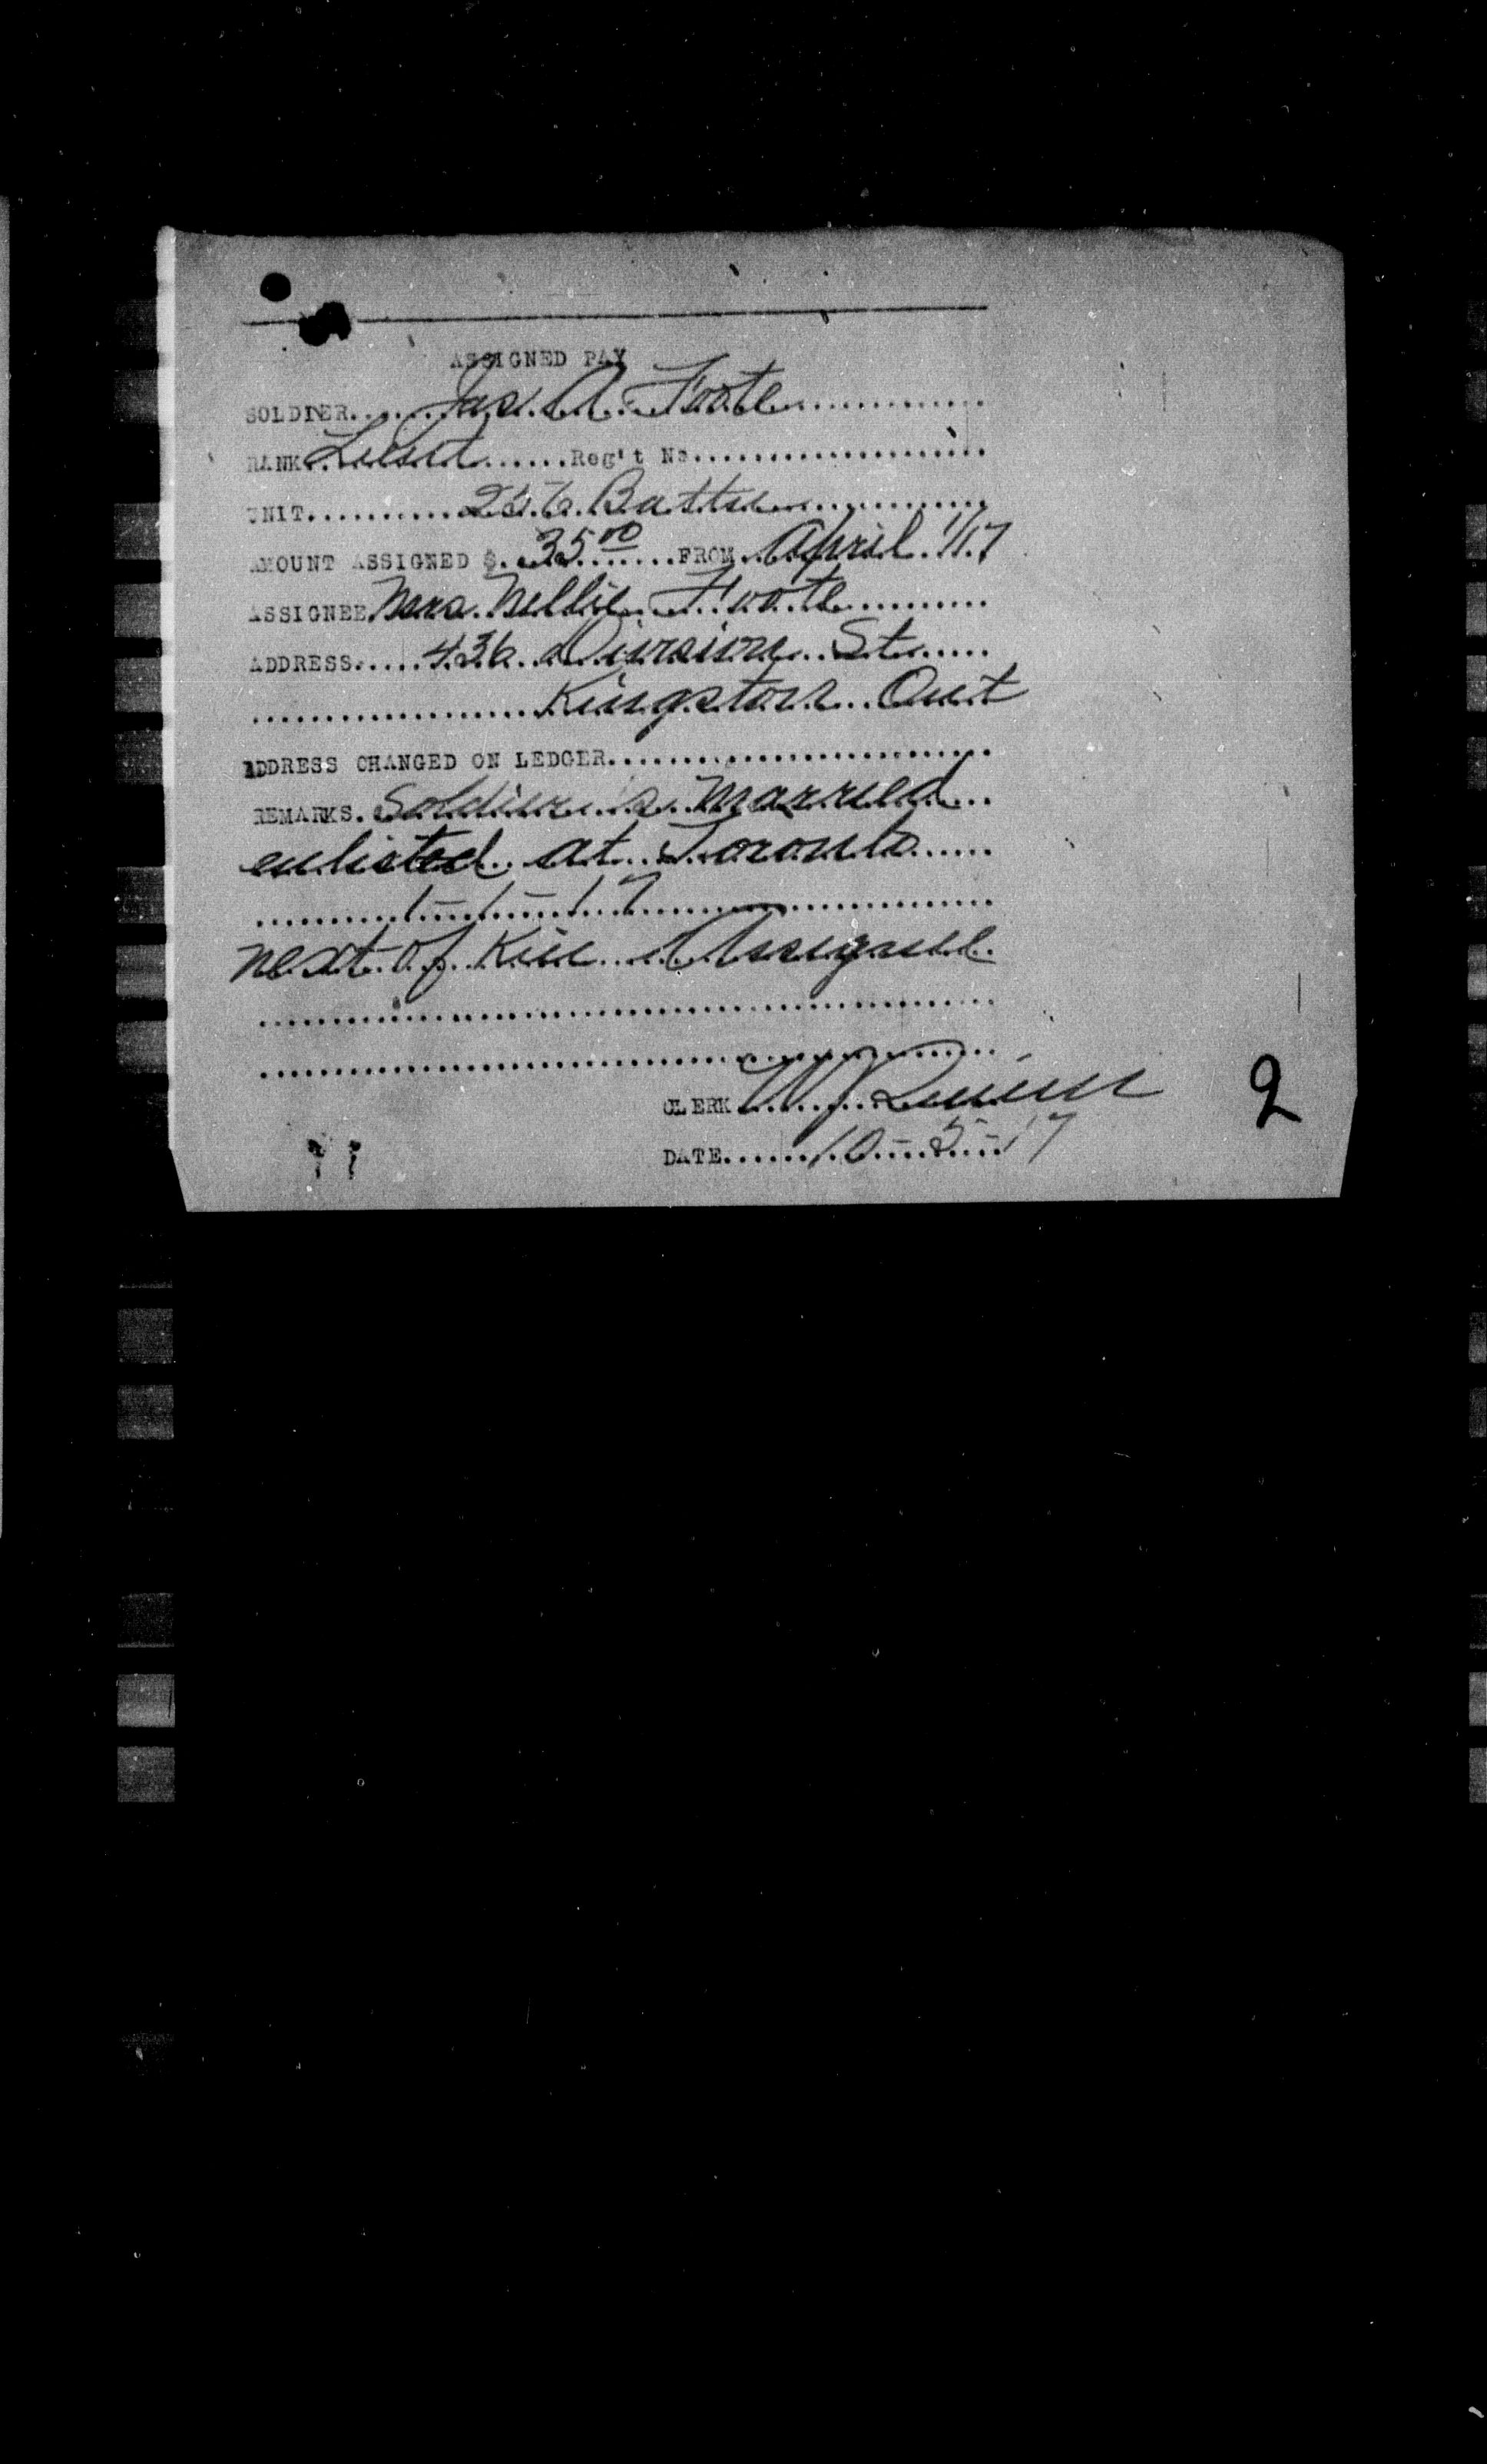 ASSIGNED PAY
SOLDIER......Jas. A. Foote..............
RANK Lieut......Reg't No....................
UNIT...........256 Battn..............
AMOUNT ASSIGNED $. 35.00 .....FROM April 1/17
ASSIGNEE Mrs. Nellie Foote..........
ADDRESS.....436 Division St......
....................Kingston Ont
ADDRESS CHANGED ON LEDGER..........................
REMARKS. Soldier is Married...
enlisted at Toronto......
..........1-1-17.....................
next of Kin Assignee.
..................................................
..................................................
CLERK W J Quinn
2
DATE......10-5-17